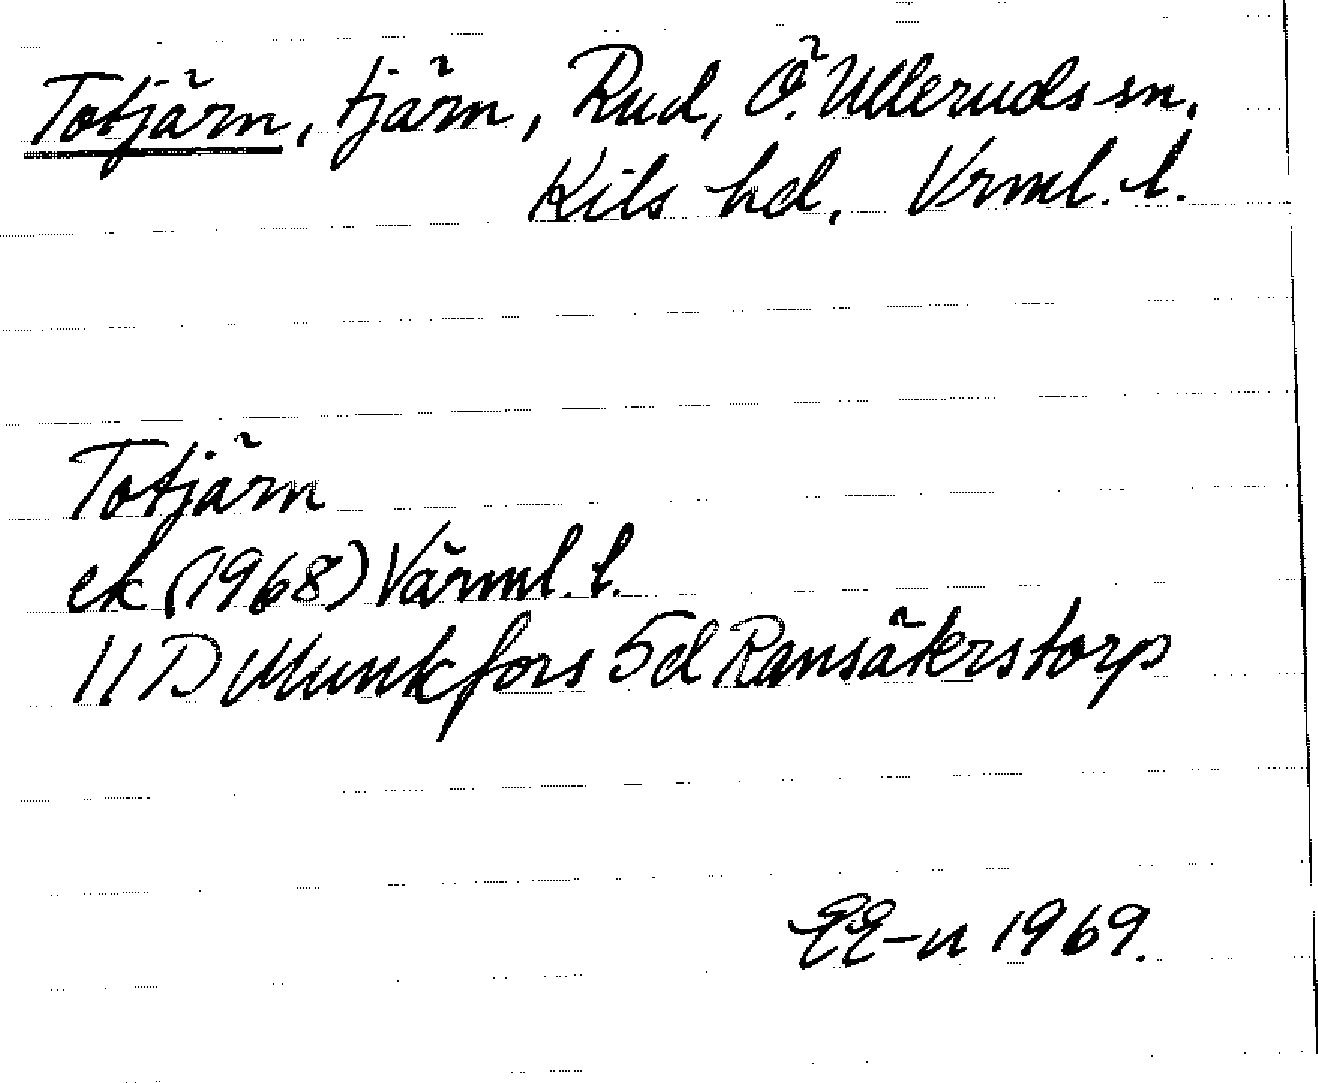 Totjärn, tjärn, Rud, Ö. Ulleruds sn,
Kils hd, Vrml. l.
Totjärn
ek (1968) Värml. l.
11 D Munkfors 5d Ransäterstorp
EE-n 1969.